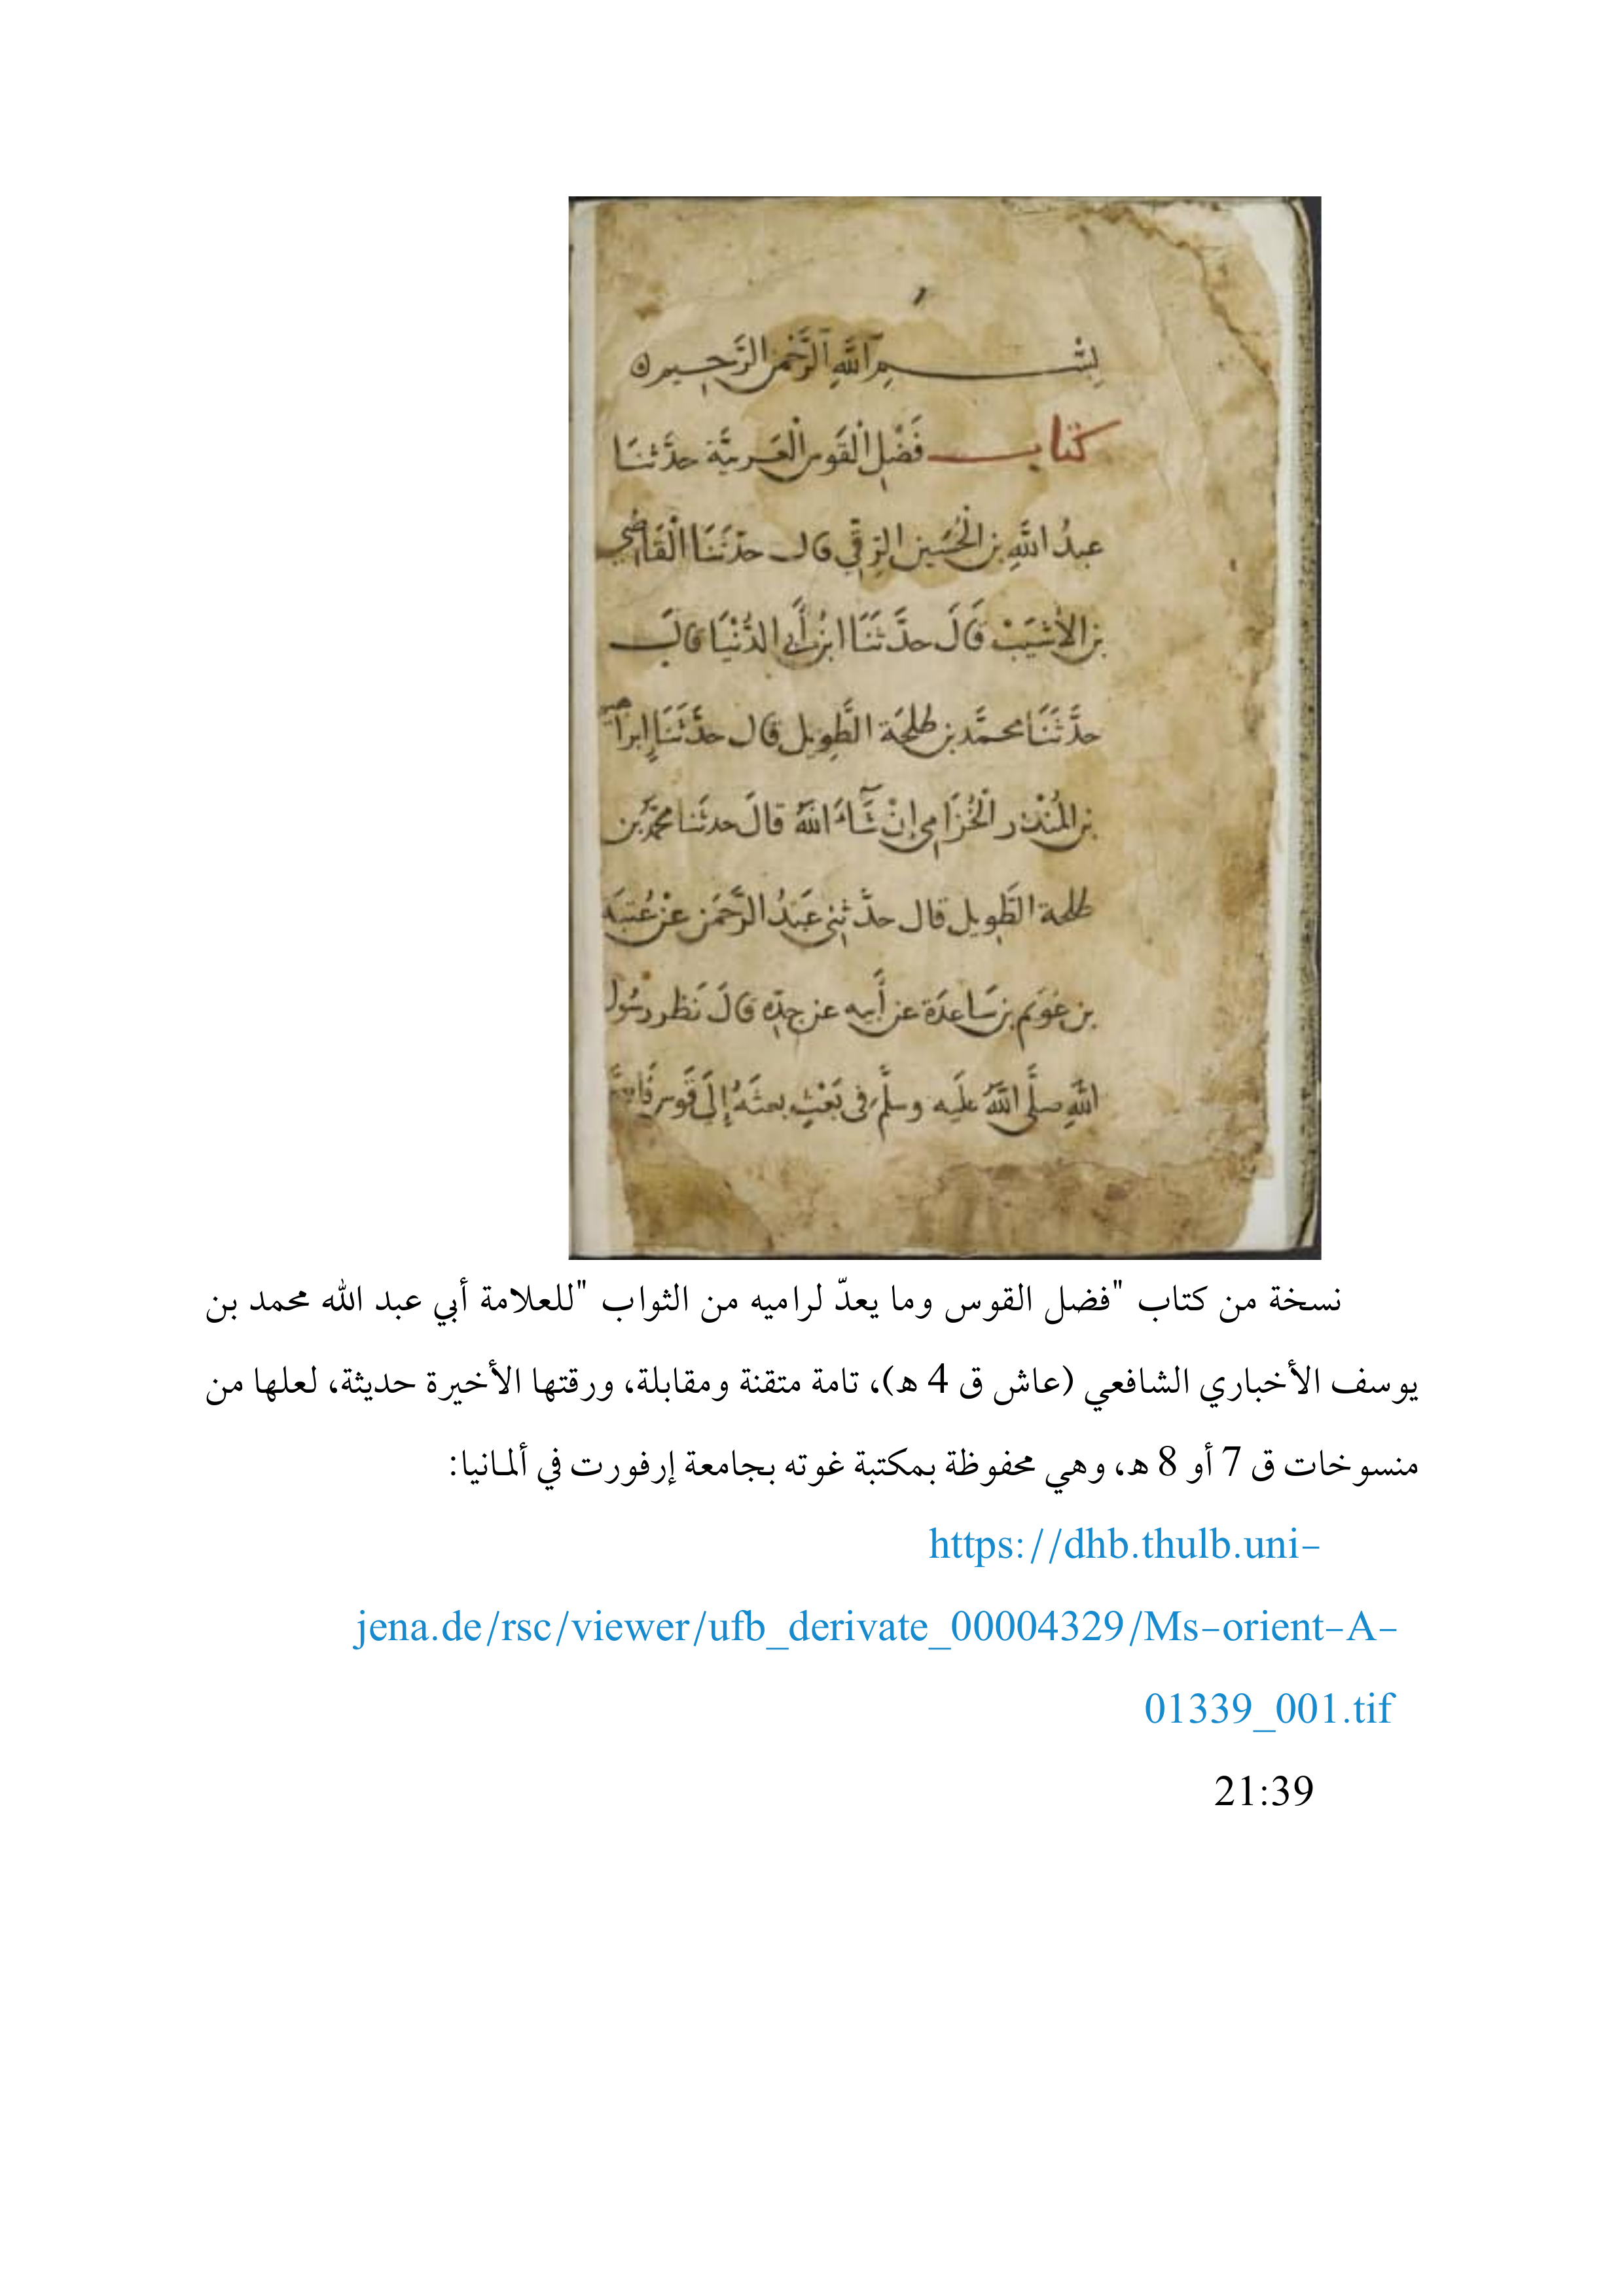 بِسْــــمِ ٱللَّهِ ٱلرَّحْمٰنِ الرَّحِيمِ ه
كتاب فَضْلِ الْقَوسِ الْعَربيَّة حدَّثنَا
عبدُ اللَّهِ بن الْحُسَين الرقّي قال حدثَنَا الْقَاضِي
بن الأشيَبْ قَالَ حدَّثَنَا ابن أَبي الدُّنْيَا قالَ
حدَّثَنَا محمَّد بن طلحَة الطَّويل قال حدَّثَنَا إبرا
بن المُنْذر الْحُزَامي إنْ شَآءَ اللَّهُ قالَ حدثَنا محمَّد بن
طلحة الطَّويل قال حدَّثني عَبْدُ الرَّحمَن عنْ عُتبَه
بن عوَيم بن سَاعدَة عن أَبيه عن جدِّه قالَ نَظر رسُول
اللَّهِ صلَّى اللَّهُ علَيه وسلَّم في بَعْثٍ بعثَهُ إلَى قَوس
نسخة من كتاب "فضل القوس وما يعدّ لراميه من الثواب "للعلامة أبي عبد الله محمد بن
يوسف الأخباري الشافعي (عاش ق 4 ه)، تامة متقنة ومقابلة، ورقتها الأخيرة حديثة، لعلها من
منسوخات ق 7 أو 8 ه، وهي محفوظة بمكتبة غوته بجامعة إرفورت في ألمانيا:
https://dhb.thulb.uni-
jena.de/rsc/viewer/ufb_derivate_00004329/Ms-orient-A-
01339_001.tif
21:39